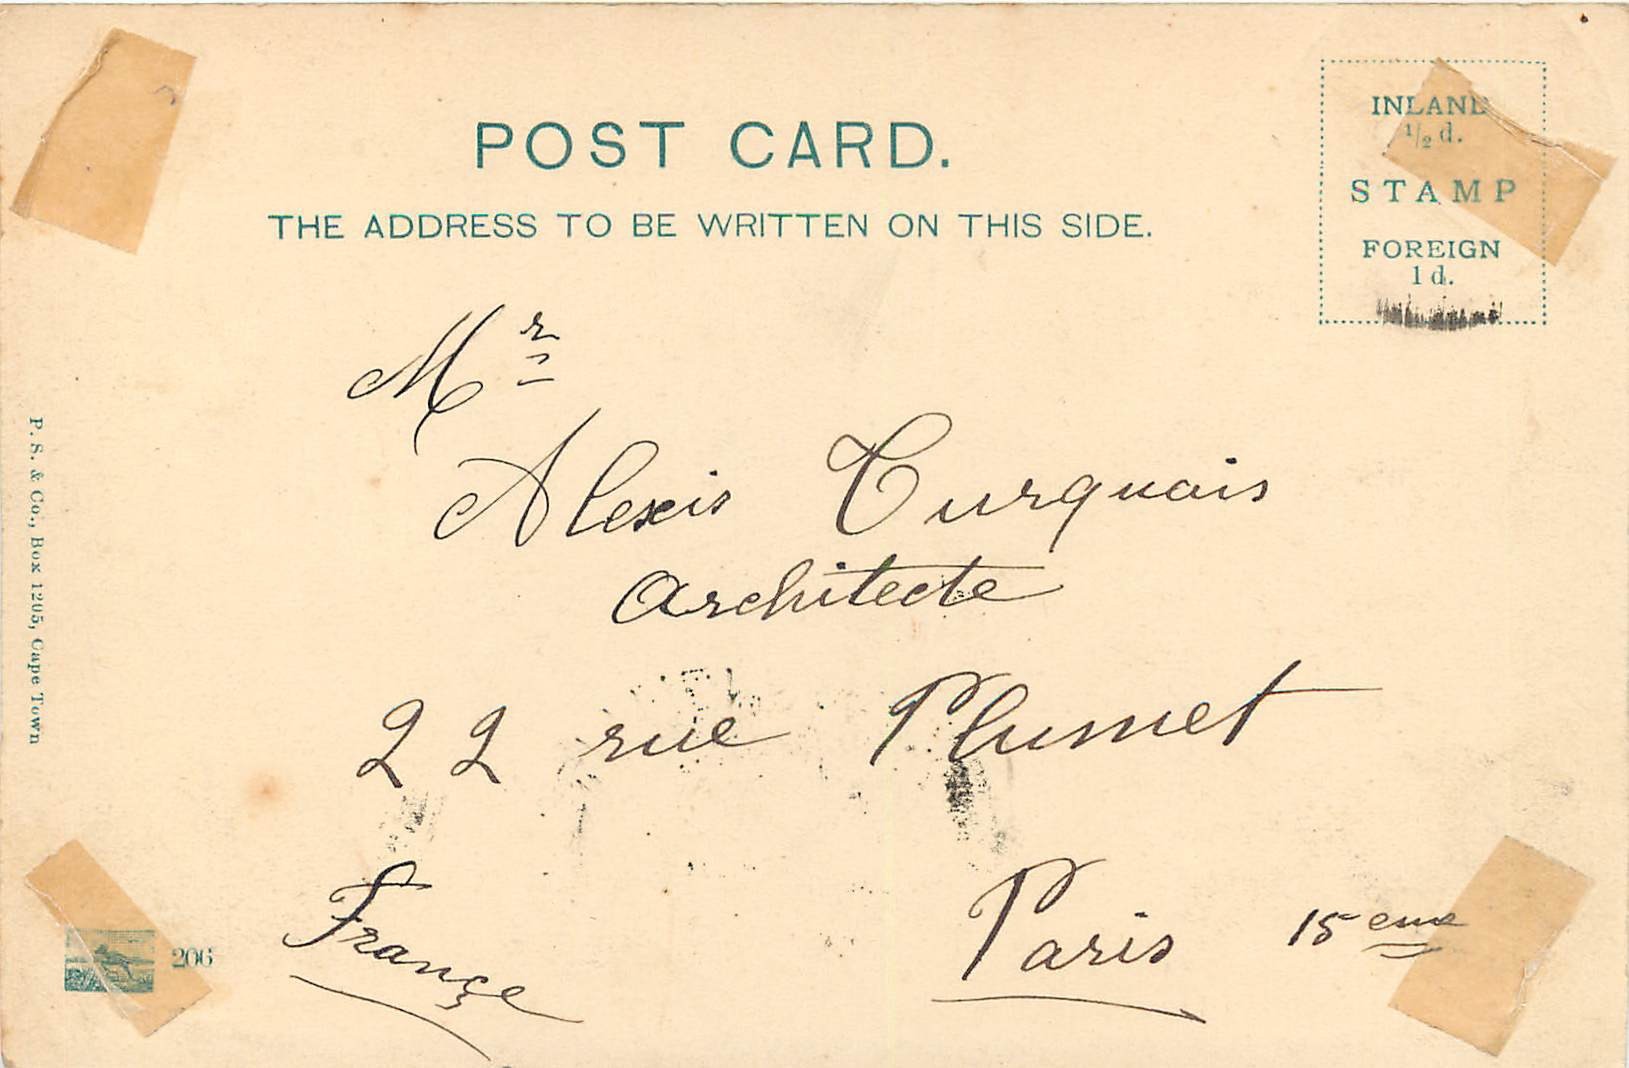 POST CARD.
THE ADDRESS TO BE WRITTEN ON THIS SIDE.
INLAND
1/2 d.
STAMP
FOREIGN
1 d.
Mr
Alexis Turquais
Architecte
22 rue Plumet
Paris 15eme
Françe
P. S. & Co., Box 1205, Cape Town
206